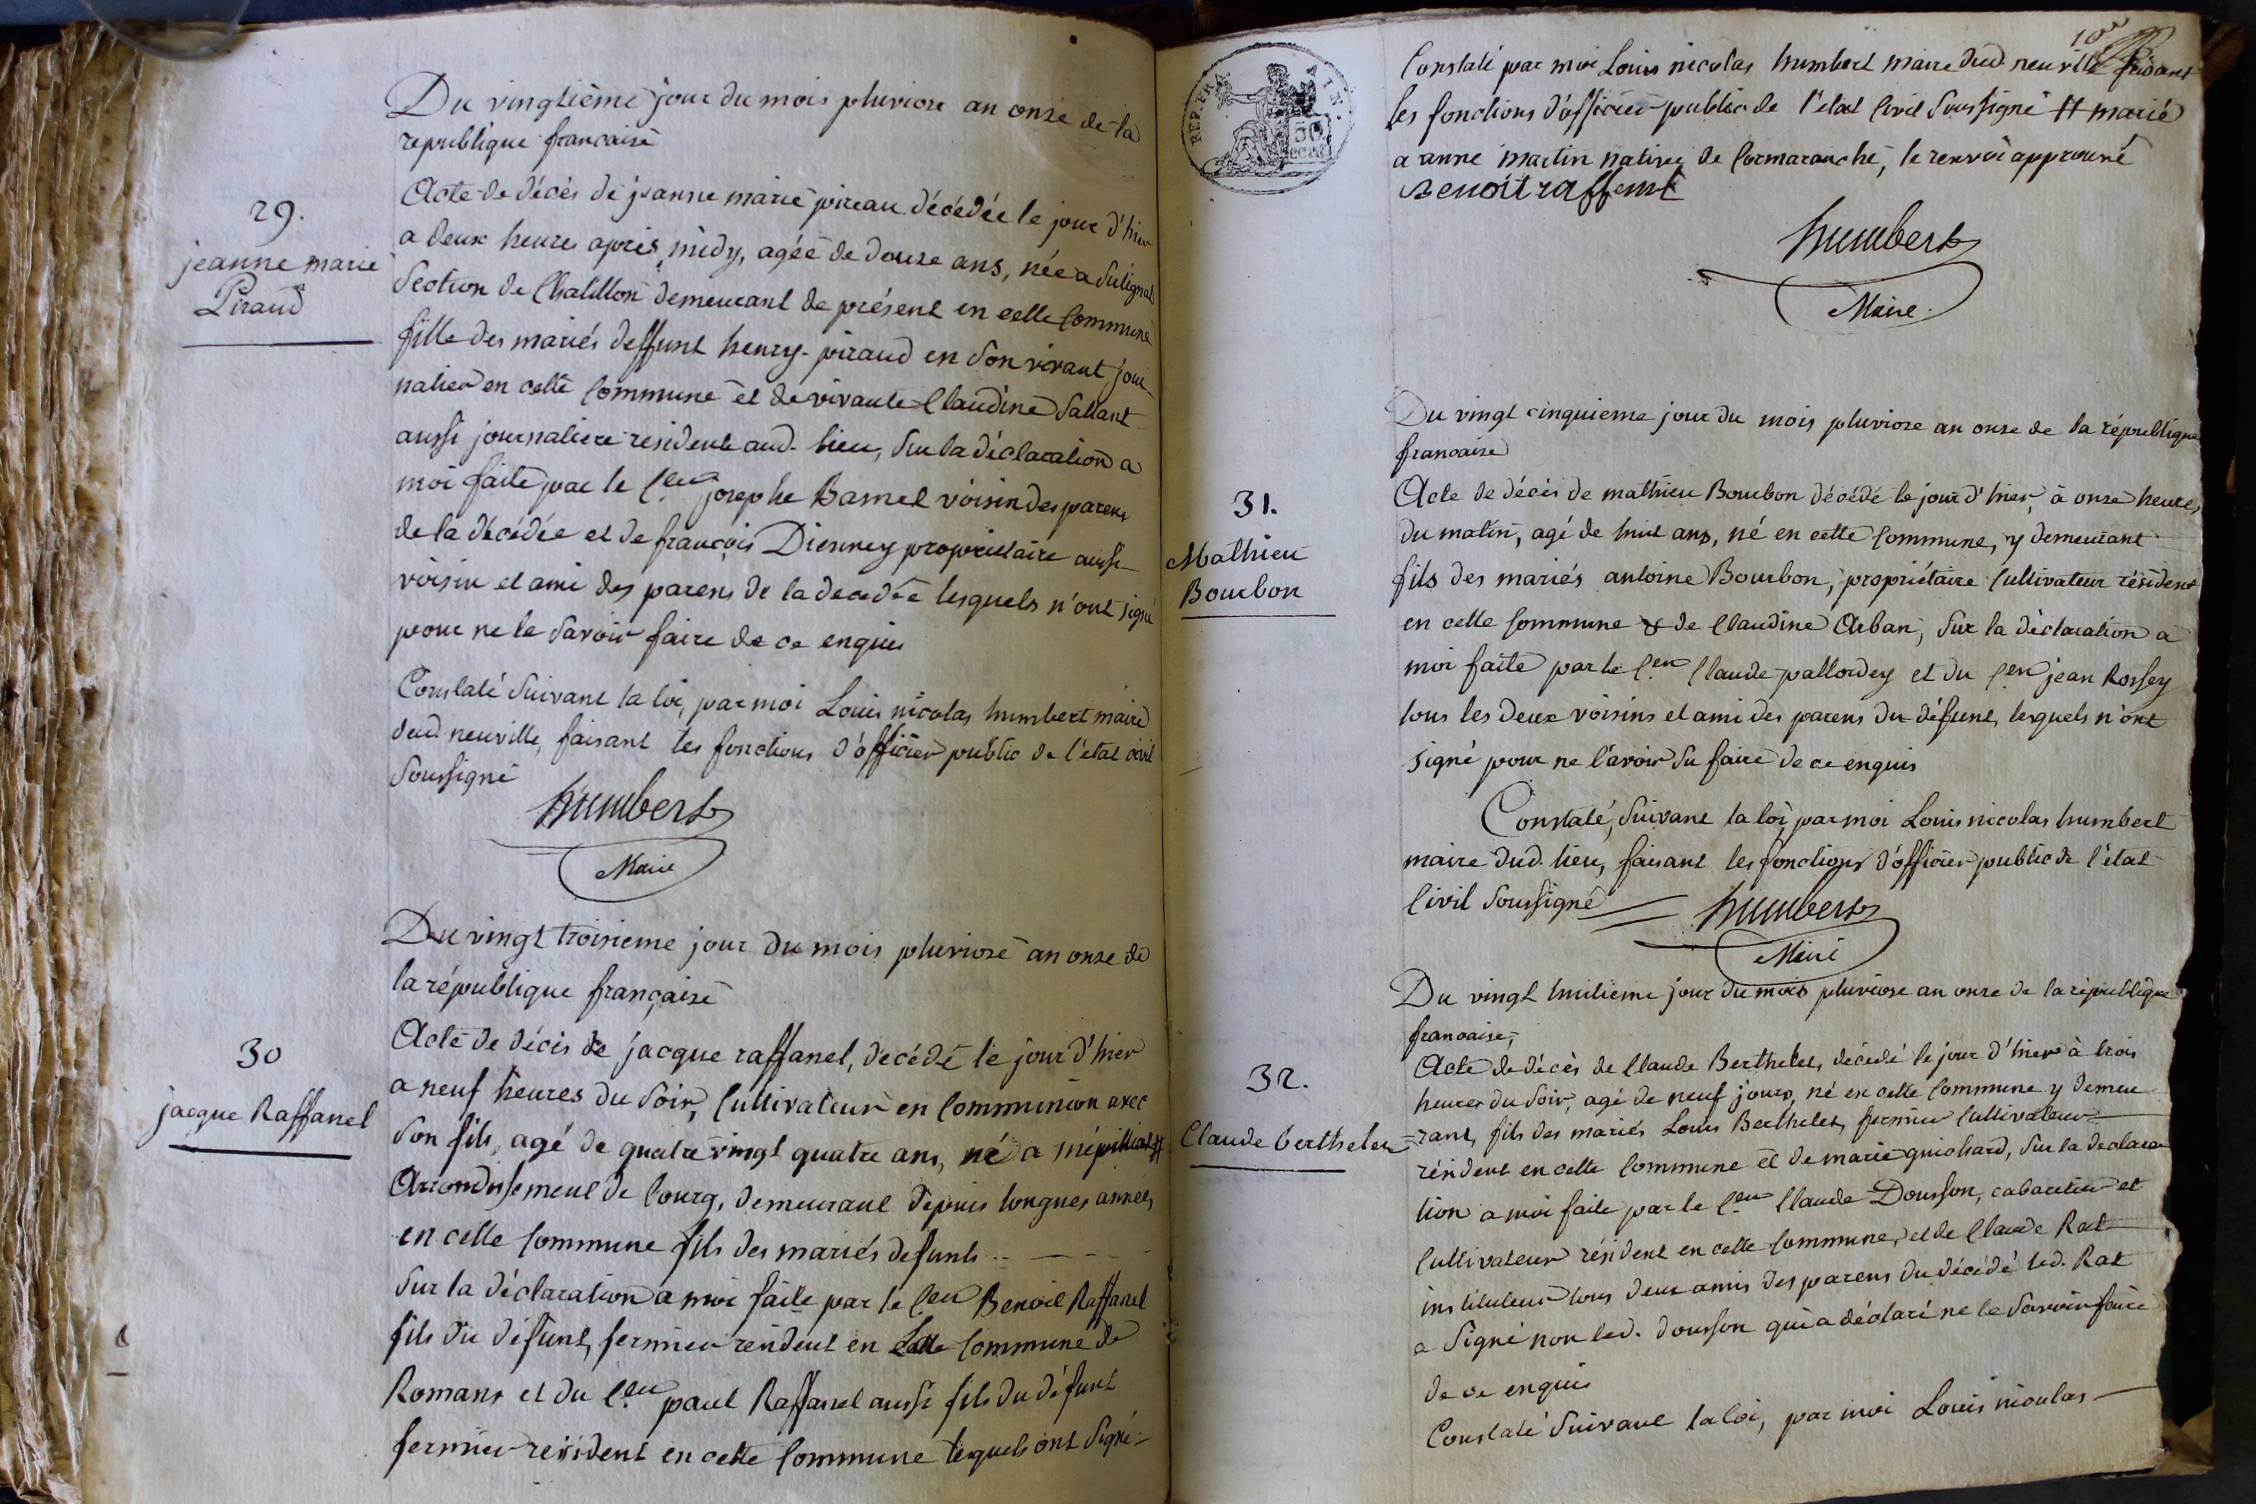 Du vingtième jour du mois pluviose an onze de la
republique francaise
29.
jeanne marie
Piraud
Acte de décès de jeanne marie pireau décédée le jour d'hier
a deux heures après midy, agée de douze ans, née a Sulignat
Section de Chatillon demeurant de présent en cette Commune
fille des mariés deffunt henry piraud en Son vivant jour
nalier en cette Commune et de vivante Claudine Sallant
aussi journaliere residente aud. lieu, Sur la déclaration a
moi faite par le Cen josephe Bamet voisin des parens
de la décédée et de françois Dienney propriétaire aussi
voisin et ami des parens de la decedée lesquels n'ont signé
pour ne le Savoir faire de ce enquis
Constaté Suivant la loi, par moi Louis nicolas humbert maire
dud neuville, faisant les fonctions d'officier public de l'état civil
Soussigné
humbert
Maire
Du vingt troisieme jour du mois pluviose an onze de
la république française
30
jacque Raffanel
Acte de décès de jacque raffanel, decédé le jour d'hier
a neuf heures du Soir, Cultivateur en Communion avec
Son fils, agé de quatre vingt quatre ans, né a mépilliat #
Arrondissement de bourg, demeurant depuis longues années
en cette Commune fils des mariés defunts
Sur la déclaration a moi faite par le Cen Benoit Raffanel
fils du défunt, fermier resident en Cette Commune de
Romans et du Cen paul Raffanel aussi fils du défunt
fermier resident en cette Commune lesquels ont Signé
Constaté par moi Louis nicolas humbert maire dud neuville faisant
les fonctions d'officier public de l'état Civil Soussigné # marié
a anne martin native de Cormaranche, le renvoi approuvé
Benoit raffanel
humbert
Maire
REP. FRA
50
CENT
Du vingt cinquieme jour du mois pluviose an onze de la république
francaise
31.
Mathieu
Bourbon
Acte de décès de mathieu Bourbon décédé le jour d'hier, à onze heures
du matin, agé de huit ans, né en cette Commune, y demeurant
fils des mariés antoine Bourbon, propriétaire Cultivateur résident
en cette Commune & de Claudine Arban, Sur la déclaration a
moi faite par le Cen Claude pallordey et du Cen jean Rossey
tous les deux voisins et ami des parens du défunt, lesquels n'ont
signé pour ne l'avoir Su faire de ce enquis
Constaté, Suivant la loi, par moi Louis nicolas humbert
maire dud. lieu, faisant les fonctions d'officier public de l'état
Civil Soussigné
humbert
Maire
Du vingt huitieme jour du mois pluviose an onze de la république
francaise,
32.
Claude berthelet
Acte de décès de Claude Berthelet, décédé le jour d'hier à trois
heures du Soir, agé de neuf jours, né en cette Commune y demeu
rant, fils des mariés Louis Berthelet, fermier Cultivateur
résident en cette Commune et de marie guichard, Sur la declara
tion a moi faite par le Cen Claude Dousson, cabaretier et
Cultivateur résident en cette Commune, et de Claude Rat
instituteur tous deux amis des parens du décédé led. Rat
a Signé non led. dousson qui a déclaré ne le Savoir faire
de ce enquis
Constaté Suivant la loi, par moi Louis nicolas